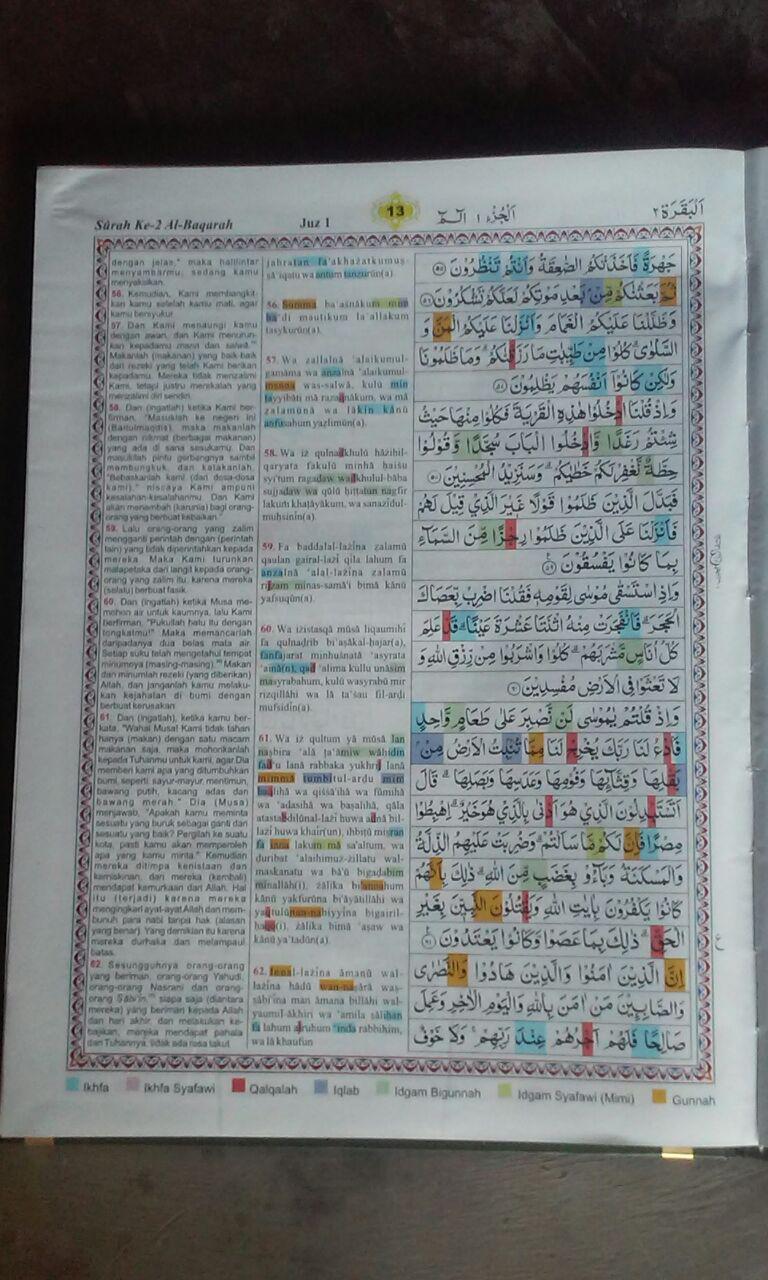 Sûrah Ke-2 Al-Baqarah
Juz 1
13
اَلْجُزْءُ ١ الٓمّٓ
اَلْبَقَرَة ٢
dengan jelas," maka halilintar
menyambarmu, sedang kamu
menyaksikan.
56. Kemudian, Kami membangkit-
kan kamu setelah kamu mati, agar
kamu bersyukur.
57. Dan Kami menaungi kamu
dengan awan, dan Kami menurun-
kan kepadamu mann dan salwā.
Makanlah (makanan) yang baik-baik
dari rezeki yang telah Kami berikan
kepadamu. Mereka tidak menzalimi
Kami, tetapi justru merekalah yang
menzalimi diri sendiri.
58. Dan (ingatlah) ketika Kami ber-
firman, "Masuklah ke negeri ini
(Baitulmaqdis), maka makanlah
dengan nikmat (berbagai makanan)
yang ada di sana sesukamu. Dan
masukilah pintu gerbangnya sambil
membungkuk, dan katakanlah,
"Bebaskanlah kami (dari dosa-dosa
kami)," niscaya Kami ampuni
kesalahan-kesalahanmu. Dan Kami
akan menambah (karunia) bagi orang-
orang yang berbuat kebaikan."
59. Lalu orang-orang yang zalim
mengganti perintah dengan (perintah
lain) yang tidak diperintahkan kepada
mereka. Maka Kami turunkan
malapetaka dari langit kepada orang-
orang yang zalim itu, karena mereka
(selalu) berbuat fasik.
60. Dan (ingatlah) ketika Musa me-
mohon air untuk kaumnya, lalu Kami
berfirman, "Pukullah batu itu dengan
tongkatmu!" Maka memancarlah
daripadanya dua belas mata air.
Setiap suku telah mengetahui tempat
minumnya (masing-masing). Makan
dan minumlah rezeki (yang diberikan)
Allah, dan janganlah kamu melaku-
kan kejahatan di bumi dengan
berbuat kerusakan.
61. Dan (ingatlah), ketika kamu ber-
kata, "Wahai Musa! Kami tidak tahan
hanya (makan) dengan satu macam
makanan saja, maka mohonkanlah
kepada Tuhanmu untuk kami, agar Dia
memberi kami apa yang ditumbuhkan
bumi, seperti: sayur-mayur, mentimun,
bawang putih, kacang adas dan
bawang merah." Dia (Musa)
menjawab, "Apakah kamu meminta
sesuatu yang buruk sebagai ganti dari
sesuatu yang baik? Pergilah ke suatu
kota, pasti kamu akan memperoleh
apa yang kamu minta." Kemudian
mereka ditimpa kenistaan dan
kemiskinan, dan mereka (kembali)
mendapat kemurkaan dari Allah. Hal
itu (terjadi) karena mereka
mengingkari ayat-ayat Allah dan mem-
bunuh para nabi tanpa hak (alasan
yang benar). Yang demikian itu karena
mereka durhaka dan melampaui
batas.
62. Sesungguhnya orang-orang
yang beriman, orang-orang Yahudi,
orang-orang Nasrani dan orang-
orang Ṣābi'īn, siapa saja (diantara
mereka) yang beriman kepada Allah
dan hari akhir, dan melakukan ke-
bajikan, mereka mendapat pahala
dari Tuhannya, tidak ada rasa takut
jahratan fa'akhażatkumuṣ-
ṣā'iqatu wa antum tanẓurūn(a).
56. Ṡumma ba'aṡnākum mim
ba'di mautikum la'allakum
tasykurūn(a).
57. Wa ẓallalnā 'alaikumul-
gamāma wa anzalnā 'alaikumul-
manna was-salwā, kulū min
ṭayyibāti mā razaqnākum, wa mā
ẓalamūnā wa lākin kānū
anfusahum yaẓlimūn(a).
58. Wa iż qulnadkhulū hāżihil-
qaryata fakulū minhā ḥaiṡu
syi'tum ragadaw wadkhulul-bāba
sujjadaw wa qūlū ḥiṭṭatun nagfir
lakum khaṭāyākum, wa sanazīdul-
muḥsinīn(a).
59. Fa baddalal-lażīna ẓalamū
qaulan gairal-lażī qīla lahum fa
anzalnā 'alal-lażīna ẓalamū
rijzam minas-samā'i bimā kānū
yafsuqūn(a).
60. Wa iżistasqā mūsā liqaumihī
fa qulnaḍrib bi'aṣākal-ḥajar(a),
fanfajarat minhuṡnatā 'asyrata
'ainā(n), qad 'alima kullu unāsim
masyrabahum, kulū wasyrabū mir
rizqillāhi wa lā ta'ṡau fil-arḍi
mufsidīn(a).
61. Wa iż qultum yā mūsā lan
naṣbira 'alā ṭa'āmiw wāḥidin
fad'u lanā rabbaka yukhrij lanā
mimmā tumbitul-arḍu mim
baqlihā wa qiṡṡā'ihā wa fūmihā
wa 'adasihā wa baṣalihā, qāla
atastabdilūnal-lażī huwa adnā bil-
lażī huwa khair(un), ihbiṭū miṣran
fa inna lakum mā sa'altum, wa
ḍuribat 'alaihimuż-żillatu wal-
maskanatu wa bā'ū bigaḍabim
minallāh(i), żālika bi'annahum
kānū yakfurūna bi'āyātillāhi wa
yaqtulūnan-nabiyyīna bigairil-
ḥaqq(i), żālika bimā 'aṣaw wa
kānū ya'tadūn(a).
62. Innal-lażīna āmanū wal-
lażīna hādū wan-naṣārā waṣ-
ṣābi'īna man āmana billāhi wal-
yaumil-ākhiri wa 'amila ṣāliḥan
fa lahum ajruhum 'inda rabbihim,
wa lā khaufun
جَهْرَةً فَاَخَذَتْكُمُ الصّٰعِقَةُ وَاَنْتُمْ تَنْظُرُوْنَ ۝٥٥
ثُمَّ بَعَثْنٰكُمْ مِّنْۢ بَعْدِ مَوْتِكُمْ لَعَلَّكُمْ تَشْكُرُوْنَ ۝٥٦
وَظَلَّلْنَا عَلَيْكُمُ الْغَمَامَ وَاَنْزَلْنَا عَلَيْكُمُ الْمَنَّ وَ
السَّلْوٰىۗ كُلُوْا مِنْ طَيِّبٰتِ مَا رَزَقْنٰكُمْۗ وَمَا ظَلَمُوْنَا
وَلٰكِنْ كَانُوْٓا اَنْفُسَهُمْ يَظْلِمُوْنَ ۝٥٧
وَاِذْ قُلْنَا ادْخُلُوْا هٰذِهِ الْقَرْيَةَ فَكُلُوْا مِنْهَا حَيْثُ
شِئْتُمْ رَغَدًا وَّادْخُلُوا الْبَابَ سُجَّدًا وَّقُوْلُوْا
حِطَّةٌ نَّغْفِرْ لَكُمْ خَطٰيٰكُمْۗ وَسَنَزِيْدُ الْمُحْسِنِيْنَ ۝٥٨
فَبَدَّلَ الَّذِيْنَ ظَلَمُوْا قَوْلًا غَيْرَ الَّذِيْ قِيْلَ لَهُمْ
فَاَنْزَلْنَا عَلَى الَّذِيْنَ ظَلَمُوْا رِجْزًا مِّنَ السَّمَاۤءِ
بِمَا كَانُوْا يَفْسُقُوْنَ ۝٥٩
وَاِذِ اسْتَسْقٰى مُوْسٰى لِقَوْمِهٖ فَقُلْنَا اضْرِبْ بِّعَصَاكَ
الْحَجَرَۗ فَانْفَجَرَتْ مِنْهُ اثْنَتَا عَشْرَةَ عَيْنًاۗ قَدْ عَلِمَ
كُلُّ اُنَاسٍ مَّشْرَبَهُمْۗ كُلُوْا وَاشْرَبُوْا مِنْ رِّزْقِ اللّٰهِ وَ
لَا تَعْثَوْا فِى الْاَرْضِ مُفْسِدِيْنَ ۝٦٠
وَاِذْ قُلْتُمْ يٰمُوْسٰى لَنْ نَّصْبِرَ عَلٰى طَعَامٍ وَّاحِدٍ
فَادْعُ لَنَا رَبَّكَ يُخْرِجْ لَنَا مِمَّا تُنْۢبِتُ الْاَرْضُ مِنْۢ
بَقْلِهَا وَقِثَّاۤىِٕهَا وَفُوْمِهَا وَعَدَسِهَا وَبَصَلِهَاۗ قَالَ
اَتَسْتَبْدِلُوْنَ الَّذِيْ هُوَ اَدْنٰى بِالَّذِيْ هُوَ خَيْرٌۗ اِهْبِطُوْا
مِصْرًا فَاِنَّ لَكُمْ مَّا سَاَلْتُمْۗ وَضُرِبَتْ عَلَيْهِمُ الذِّلَّةُ
وَالْمَسْكَنَةُ وَبَاۤءُوْ بِغَضَبٍ مِّنَ اللّٰهِۗ ذٰلِكَ بِاَنَّهُمْ
كَانُوْا يَكْفُرُوْنَ بِاٰيٰتِ اللّٰهِ وَيَقْتُلُوْنَ النَّبِيّٖنَ بِغَيْرِ
الْحَقِّۗ ذٰلِكَ بِمَا عَصَوْا وَّكَانُوْا يَعْتَدُوْنَ ۝٦١
اِنَّ الَّذِيْنَ اٰمَنُوْا وَالَّذِيْنَ هَادُوْا وَالنَّصٰرٰى
وَالصَّابِـِٕيْنَ مَنْ اٰمَنَ بِاللّٰهِ وَالْيَوْمِ الْاٰخِرِ وَعَمِلَ
صَالِحًا فَلَهُمْ اَجْرُهُمْ عِنْدَ رَبِّهِمْۚ وَلَا خَوْفٌ
ع
Ikhfa
Ikhfa Syafawi
Qalqalah
Iqlab
Idgam Bigunnah
Idgam Syafawi (Mimi)
Gunnah